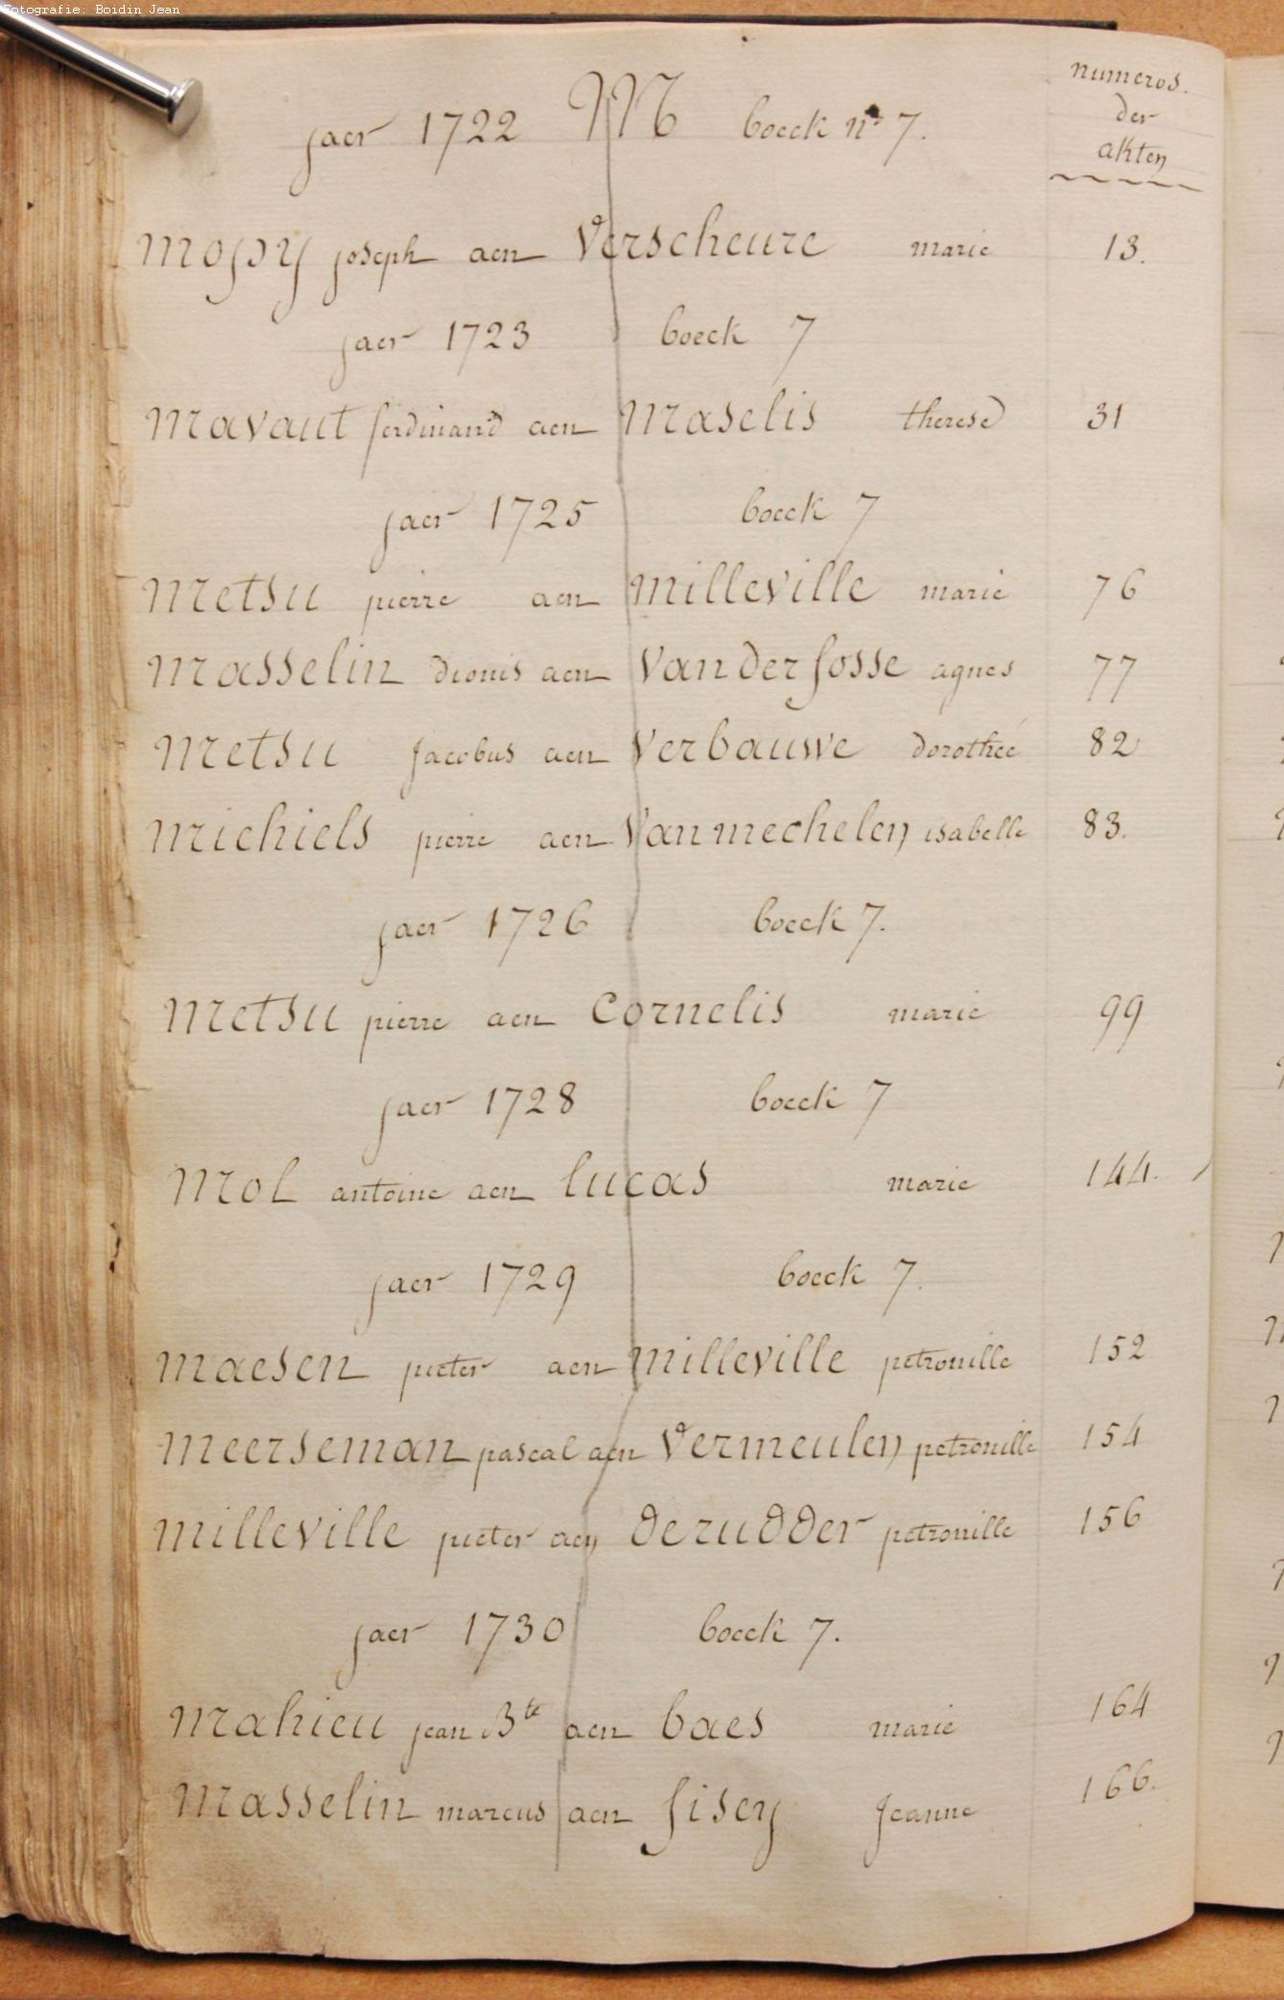 Fotografie: Boidin Jean
numeros.
der
akten
jaer 1722 M boeck n° 7.
joseph aen Verscheure marie 13.
jaer 1723 boeck 7
Mavaut ferdinand aen Maselis therese 31
jaer 1725 boeck 7
Metsu pierre aen Milleville marie 76
Masselin dionis aen Vanderfosse agnes 77
Metsu Jacobus aen Verbauwe dorothée 82
Michiels pierre aen Vanmechelen isabelle 83.
jaer 1726 boeck 7.
Metsu pierre aen Cornelis marie 99
jaer 1728 boeck 7
Mol antoine aen lucas marie 144.
jaer 1729 boeck 7.
Maesen pieter aen Milleville petronille 152
Meerseman pascal aen Vermeulen petronille 154
Milleville pieter aen derudder petronille 156
jaer 1730 boeck 7.
Mahieu jean Bte aen baes marie 164
Masselin marcus aen fisey Jeanne 166.